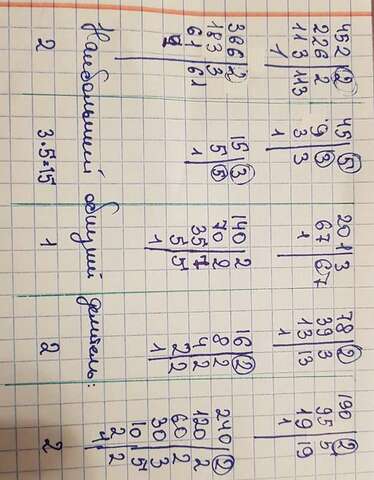 452 2 45 5 201 3 78 2 190 2
226 2 9 3 67 67 39 3 95 5
113 113 3 3 1 13 13 19 19
1 1 1 1
366 2 15 3 140 2 16 2 240 2
183 3 5 5 70 2 8 2 120 2
61 61 1 35 7 4 2 60 2
5 5 2 2 30 3
1 1 10 5
2 2
1
Наибольший общий делитель:
2 3·5=15 1 2 2